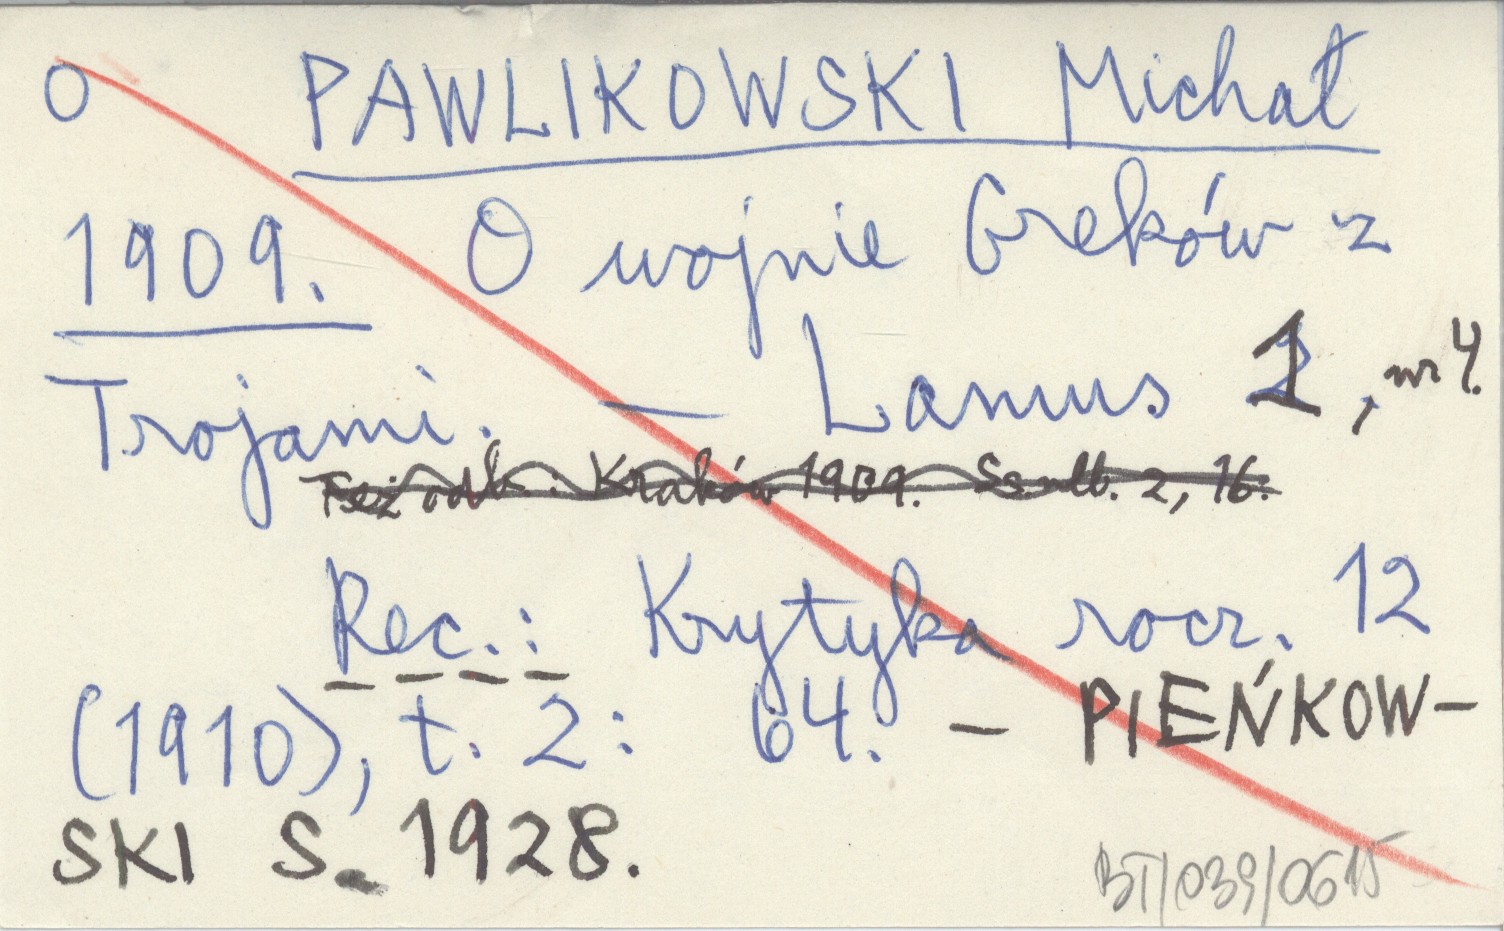 O PAWLIKOWSKI Michał
1909. O wojnie Greków z
Trojami. — Lamus 1, nr 4.
Też odb.: Kraków 1909. Ss nlb. 2, 16.
Rec.: Krytyka rocz. 12
(1910), t. 2: 64. – PIEŃKOW-
SKI S. 1928.
BT/039/0615